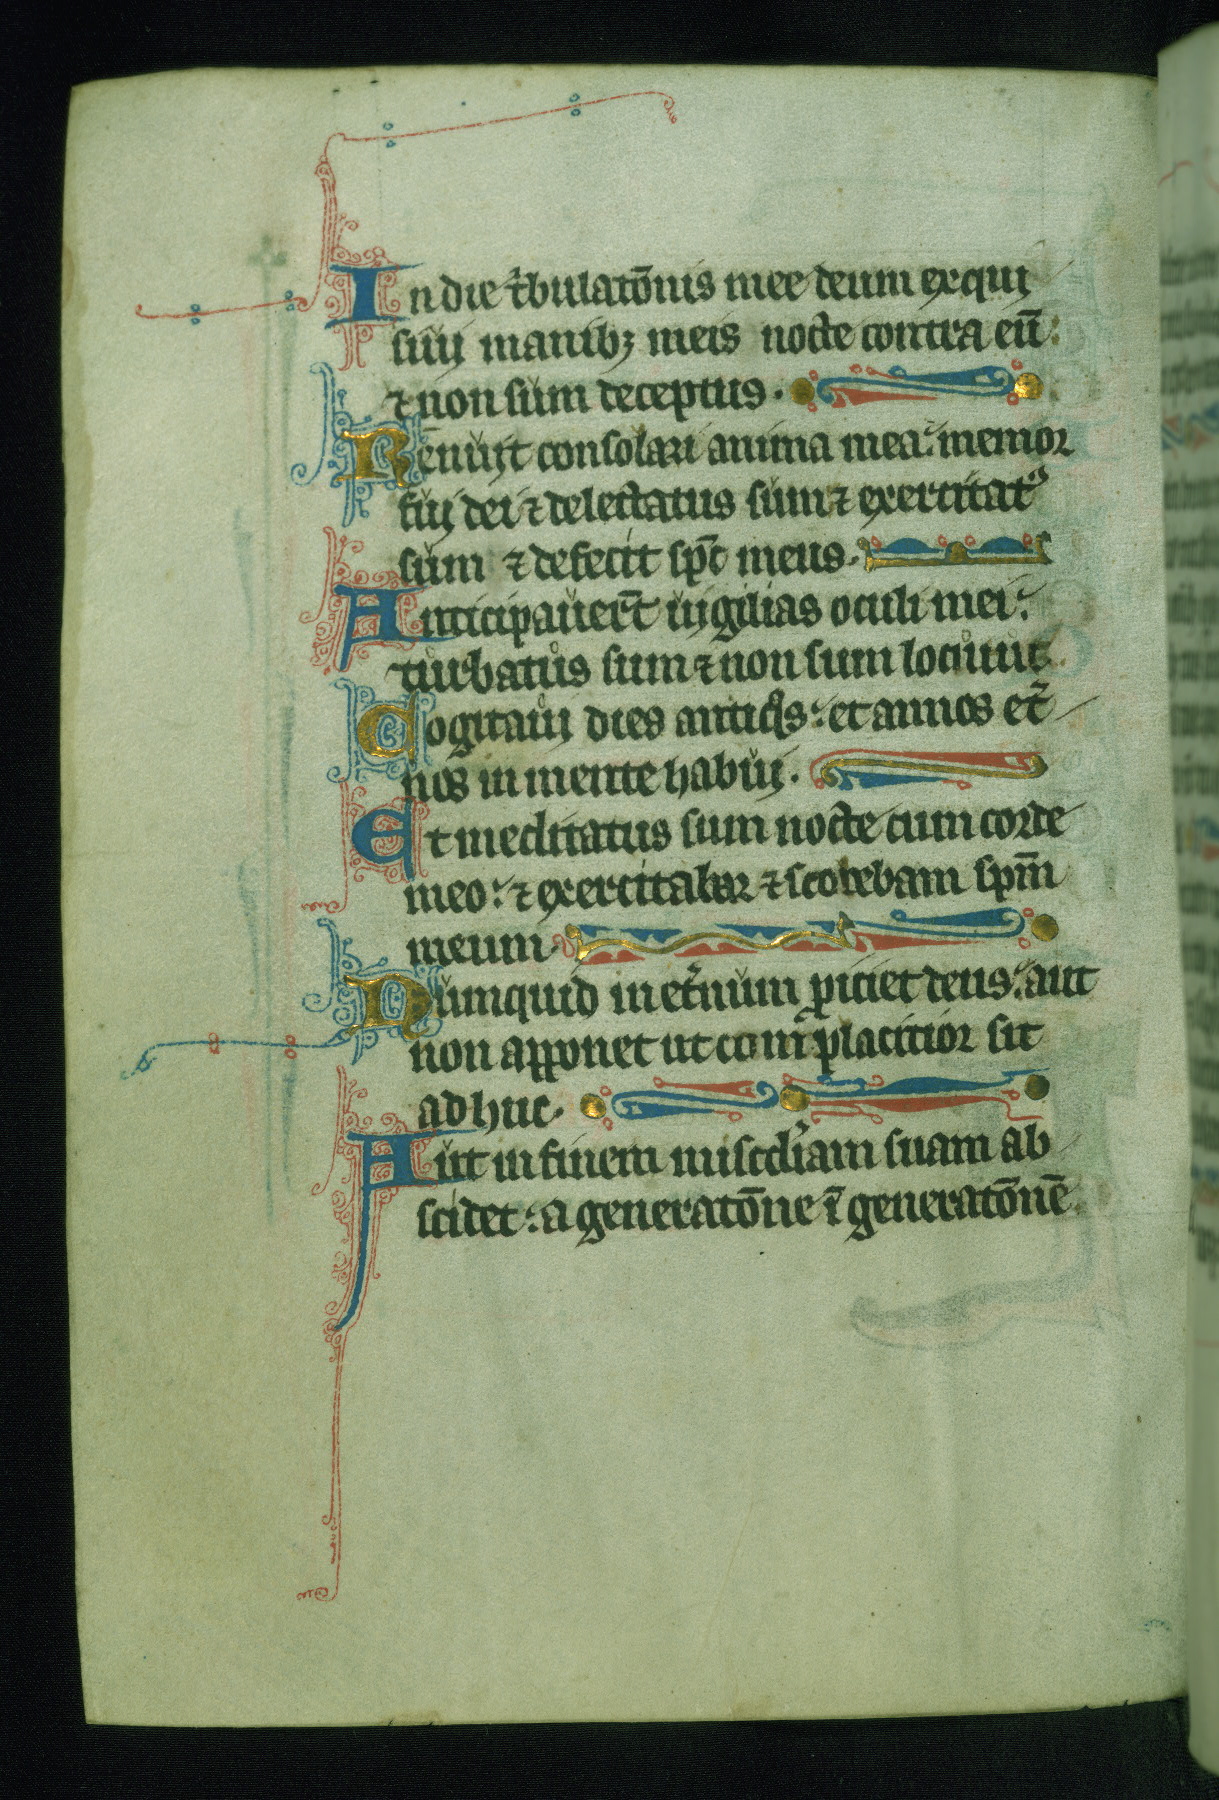 In die t̾bulatōnis mee deum exqui
siui manibꝫ meis nocte contra eū:
⁊ non sum deceptus.
Renuit consolari anima mea: memor
fui dei ⁊ delectatus sum ⁊ exercitatꝰ
sum ⁊ defecit sp̄c meus.
Anticipauer̄t uigilias oculi mei:
turbatus sum ⁊ non sum locutus
Cogitaui dies antiq̄s: et annos et̾
nos in mente habui.
Et meditatus sum nocte cum corde
meo: ⁊ exercitabar ⁊ scobebam sp̄m
meum.
Numquid in et̾num ꝓiciet deus: aut
non apponet ut com̄placitior sit
adhuc.
Aut in finem miscd̾iam suam ab
scidet: a generatōne ī generatōnē